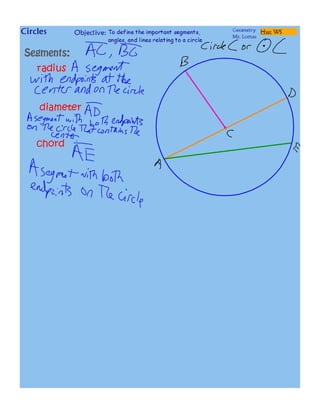 Circles
Objective: To define the important segments,
angles, and lines relating to a circle
Geometry
Mr. Lomas
Hwk W5
Segments:
AC, BC
Circle C or ⊙C
radius A segment
with endpoints at the
center and on The circle
diameter AD
A segment with both endpoints
on The circle That contains The
center
chord
AE
A segment with both
endpoints on The circle
B
D
C
A
E